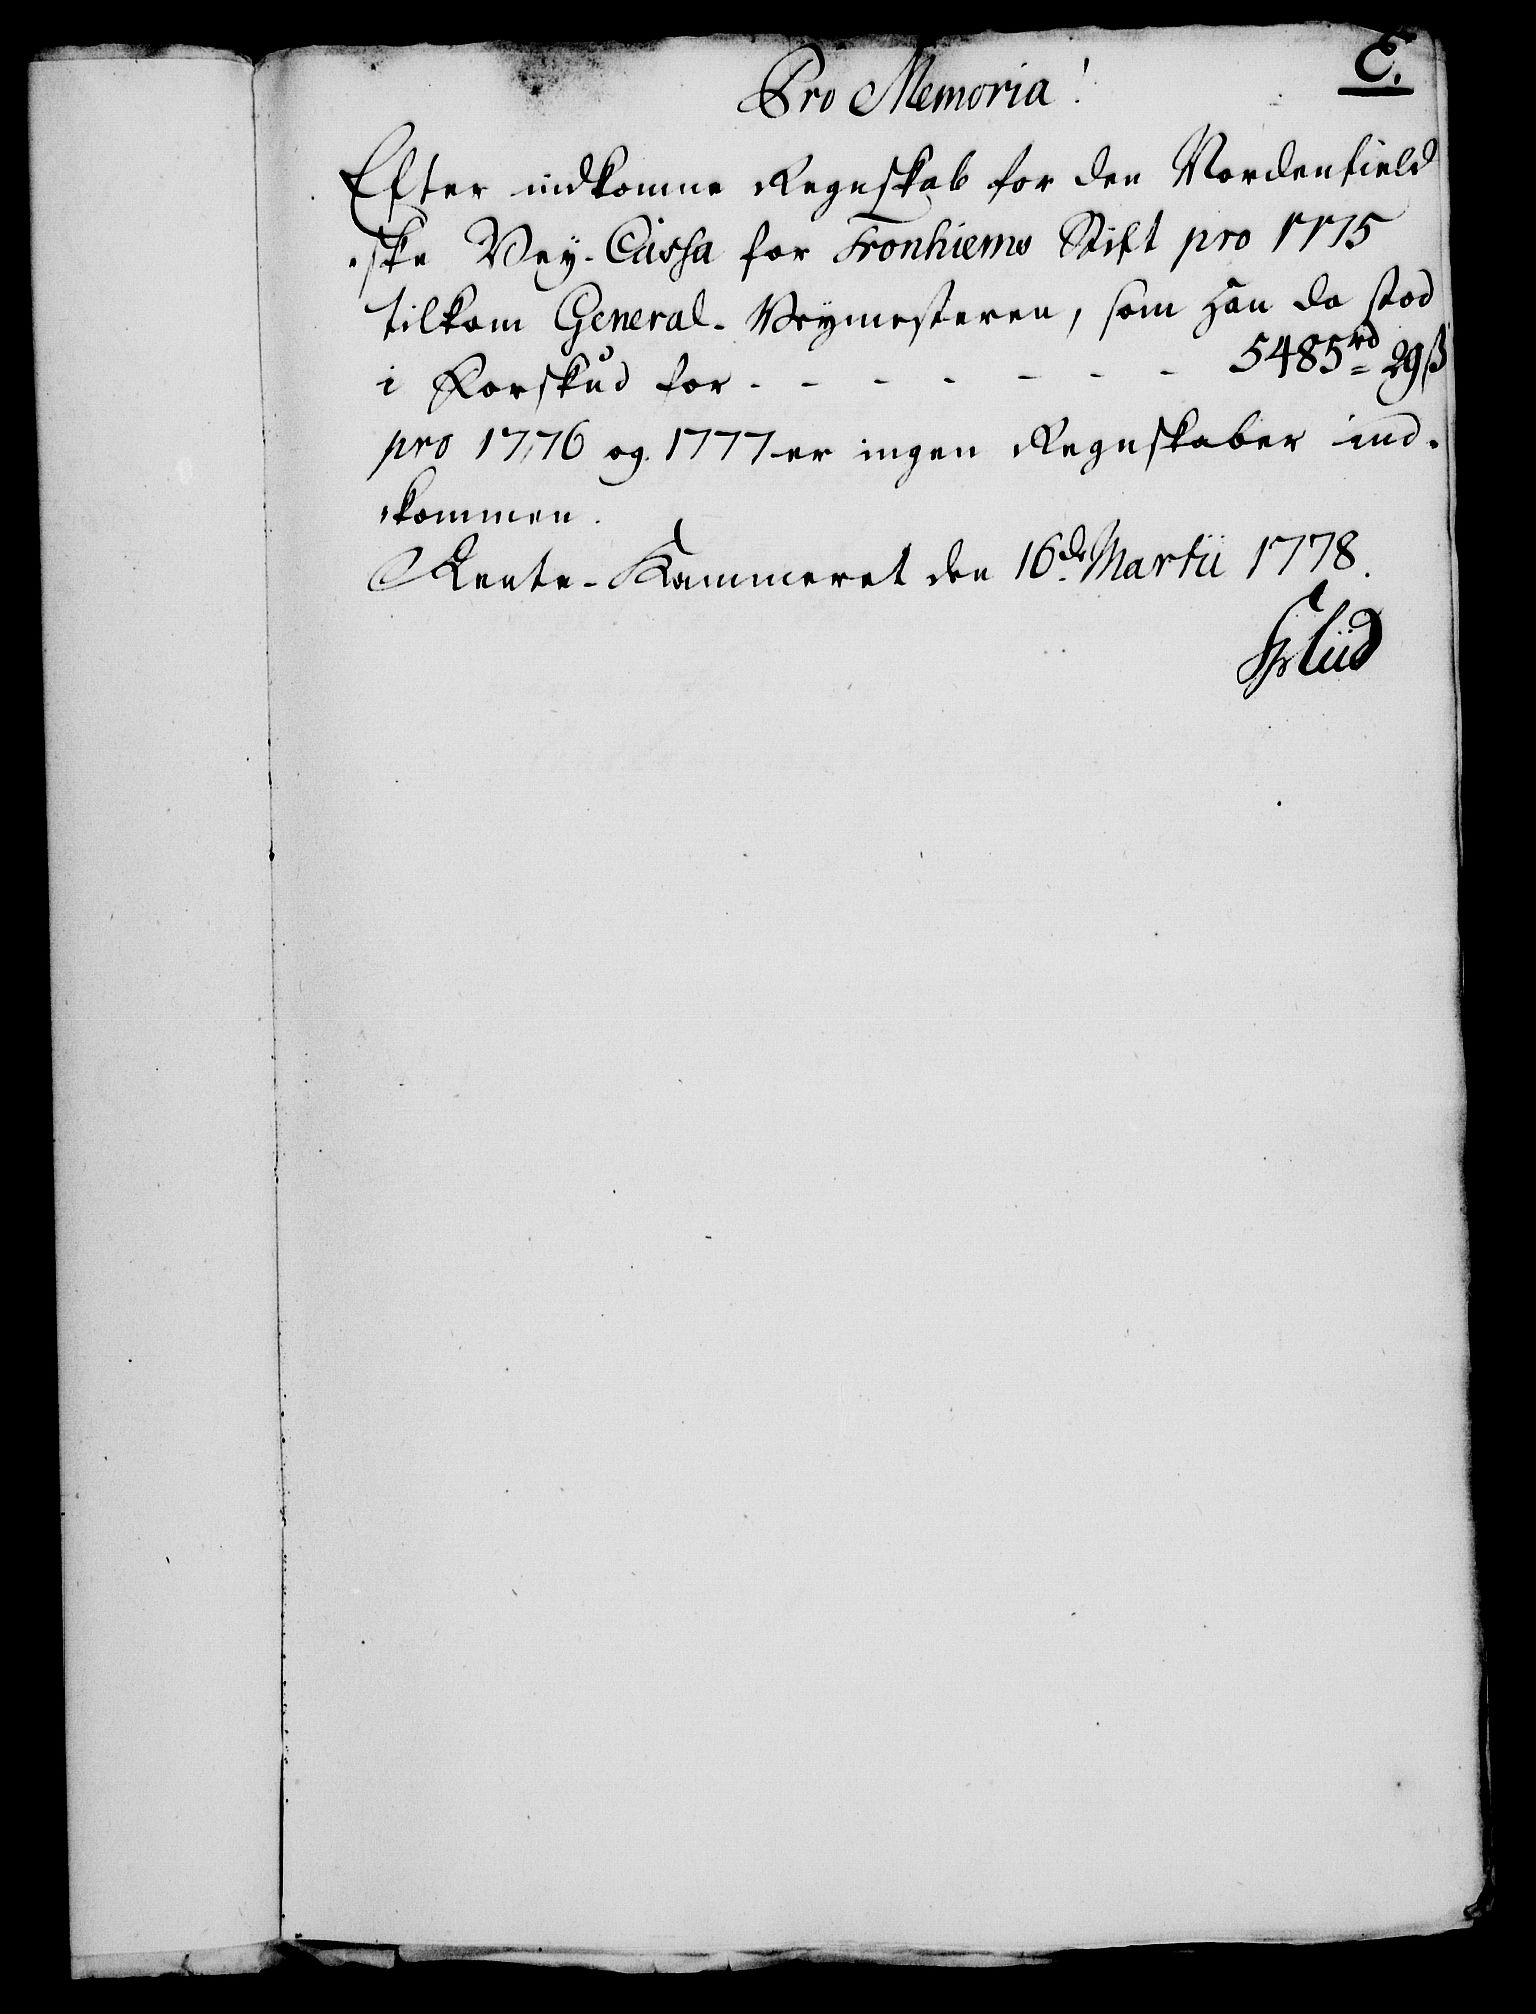 E.
Pro Memoria!
Efter indkomne Regnskab for den Nordenfield
ske Vey-Cassa for Tronhiems Stift pro 1775
tilkom General-Veymesteren, som han da stod
i Forskud for - - - - - - - 5485rd = 29ß
pro 1776 og 1777 er ingen Regnskaber ind-
kommen.
Rente-Kammeret den 16de Martii 1778.